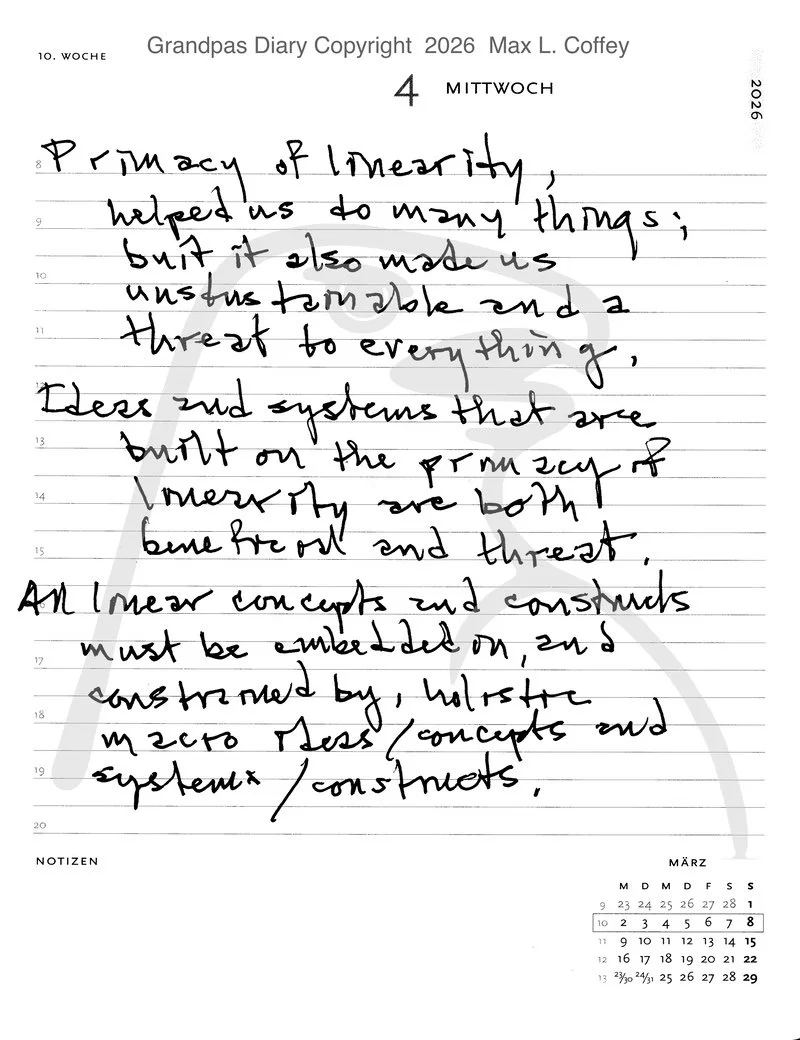 Grandpas Diary Copyright 2026 Max L. Coffey
10. WOCHE
4 MITTWOCH
2026
8 Primacy of linearity,
9 helped us do many things;
but it also made us
10
unsustainable and a
11 threat to everything.
Ideas and systems that are
13 built on the primacy of
14 linearity are both
15 beneficial and threat.
All linear concepts and constructs
17 must be embedded on, and
constrained by, holistic
18 macro ideas/concepts and
19 systems/constructs.
20
NOTIZEN
MÄRZ
M D M D F S S
9 23 24 25 26 27 28 1
10 2 3 4 5 6 7 8
11 9 10 11 12 13 14 15
12 16 17 18 19 20 21 22
13 23/30 24/31 25 26 27 28 29